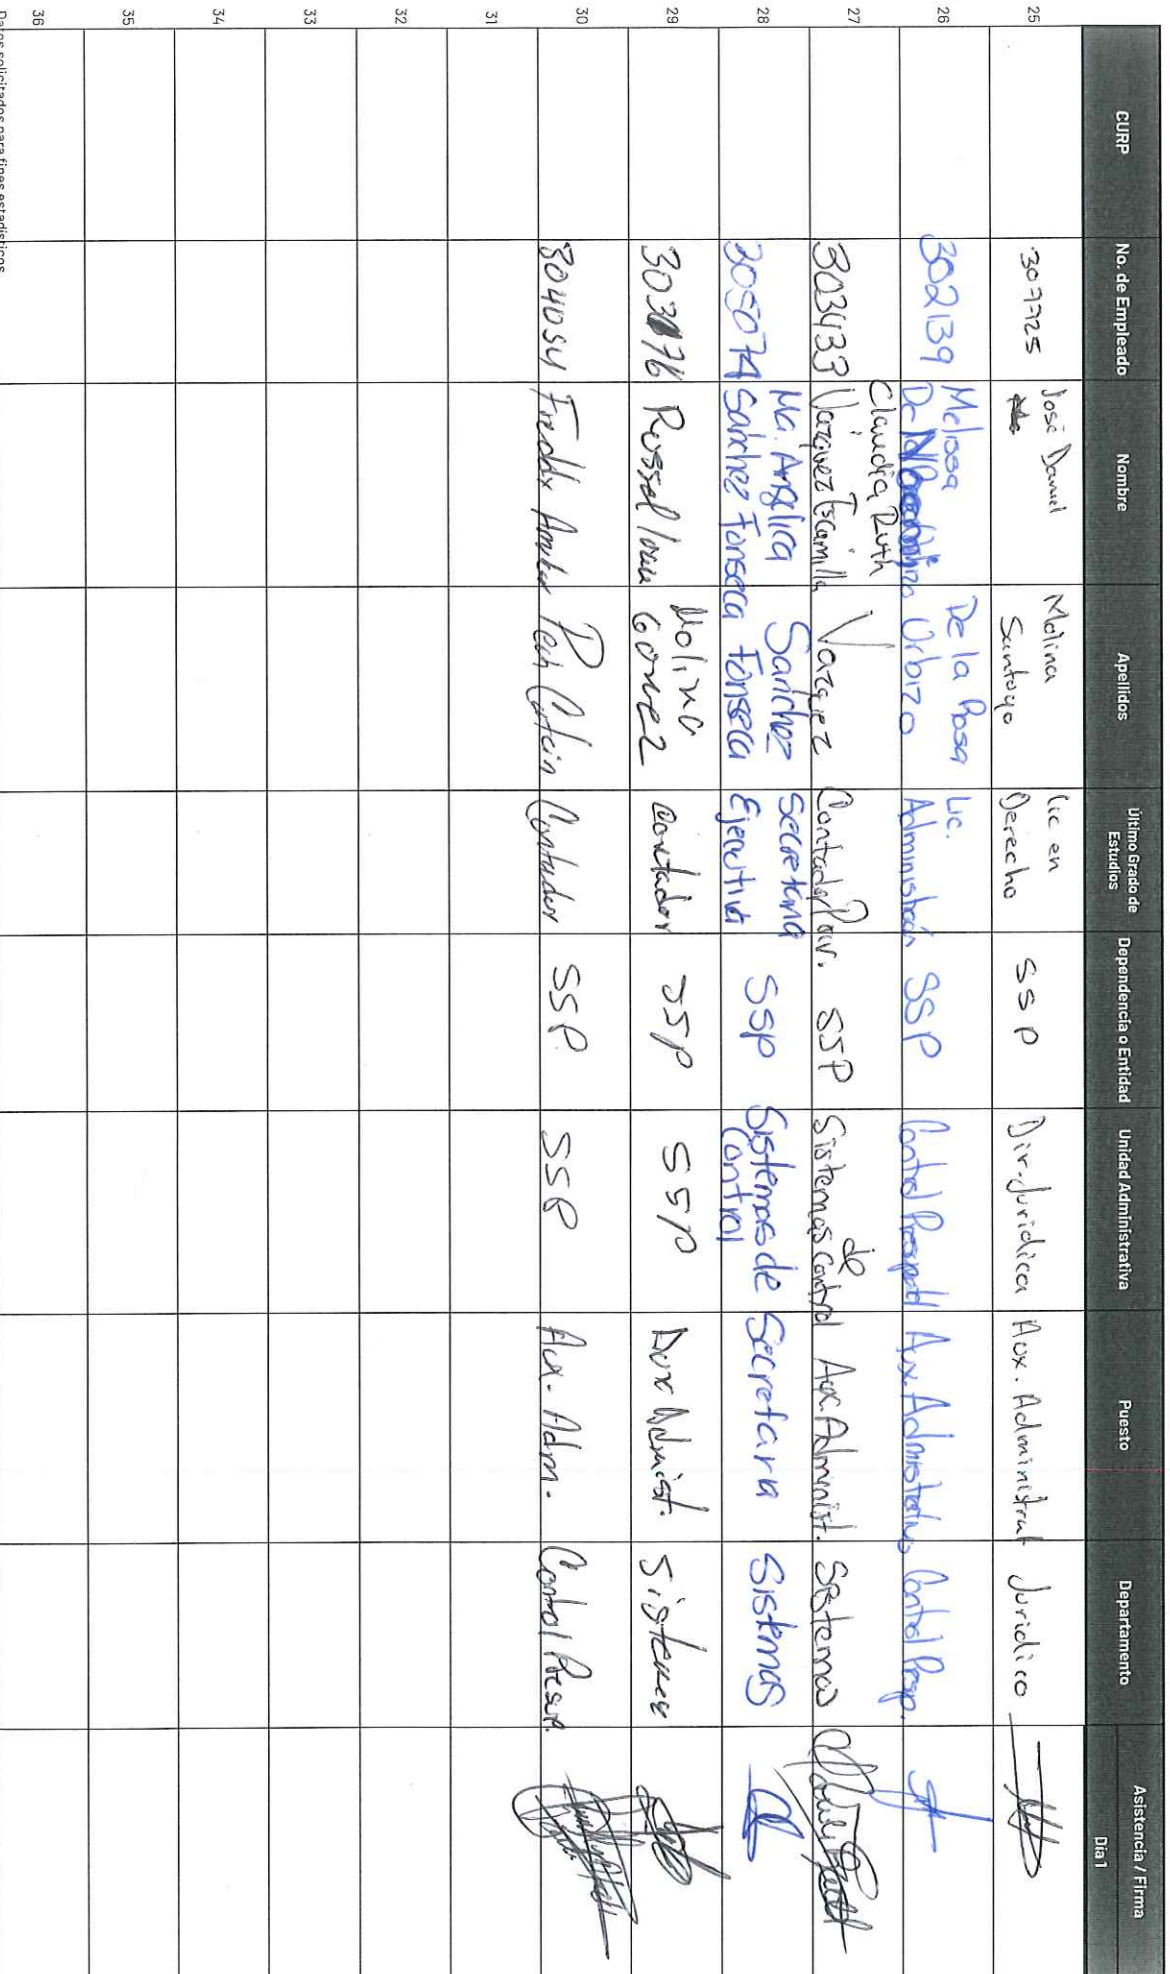 CURP No. de Empleado Nombre Apellidos Último Grado de Estudios Dependencia o Entidad Unidad Administrativa Puesto Departamento Asistencia / Firma
Dia 1
25 307725 José Daniel Molina Santoyo Lic en Derecho SSP Dir. Juridica Aux. Administrat Juridico
26 302139 Melissa De la Rosa Urbizo Lic. Administración SSP Control Presup. Aux. Administrativo Control Presp.
27 303433 Claudia Ruth Vazquez Escamilla Vazquez Contador Priv. SSP Sistemas de Control Aux. Administ. Sistemas
28 305074 Ma. Angelica Sanchez Fonseca Sanchez Fonseca Secretaria Ejecutiva SSP Sistemas de Control Secretaria Sistemas
29 Russel Molina Gomez Contador SSP SSP Aux Administ. Sistemas
30 304054 Freddy Pech Contador SSP SSP Aux. Adm. Control Presup.
31
32
33
34
35
36
Datos solicitados para fines estadísticos